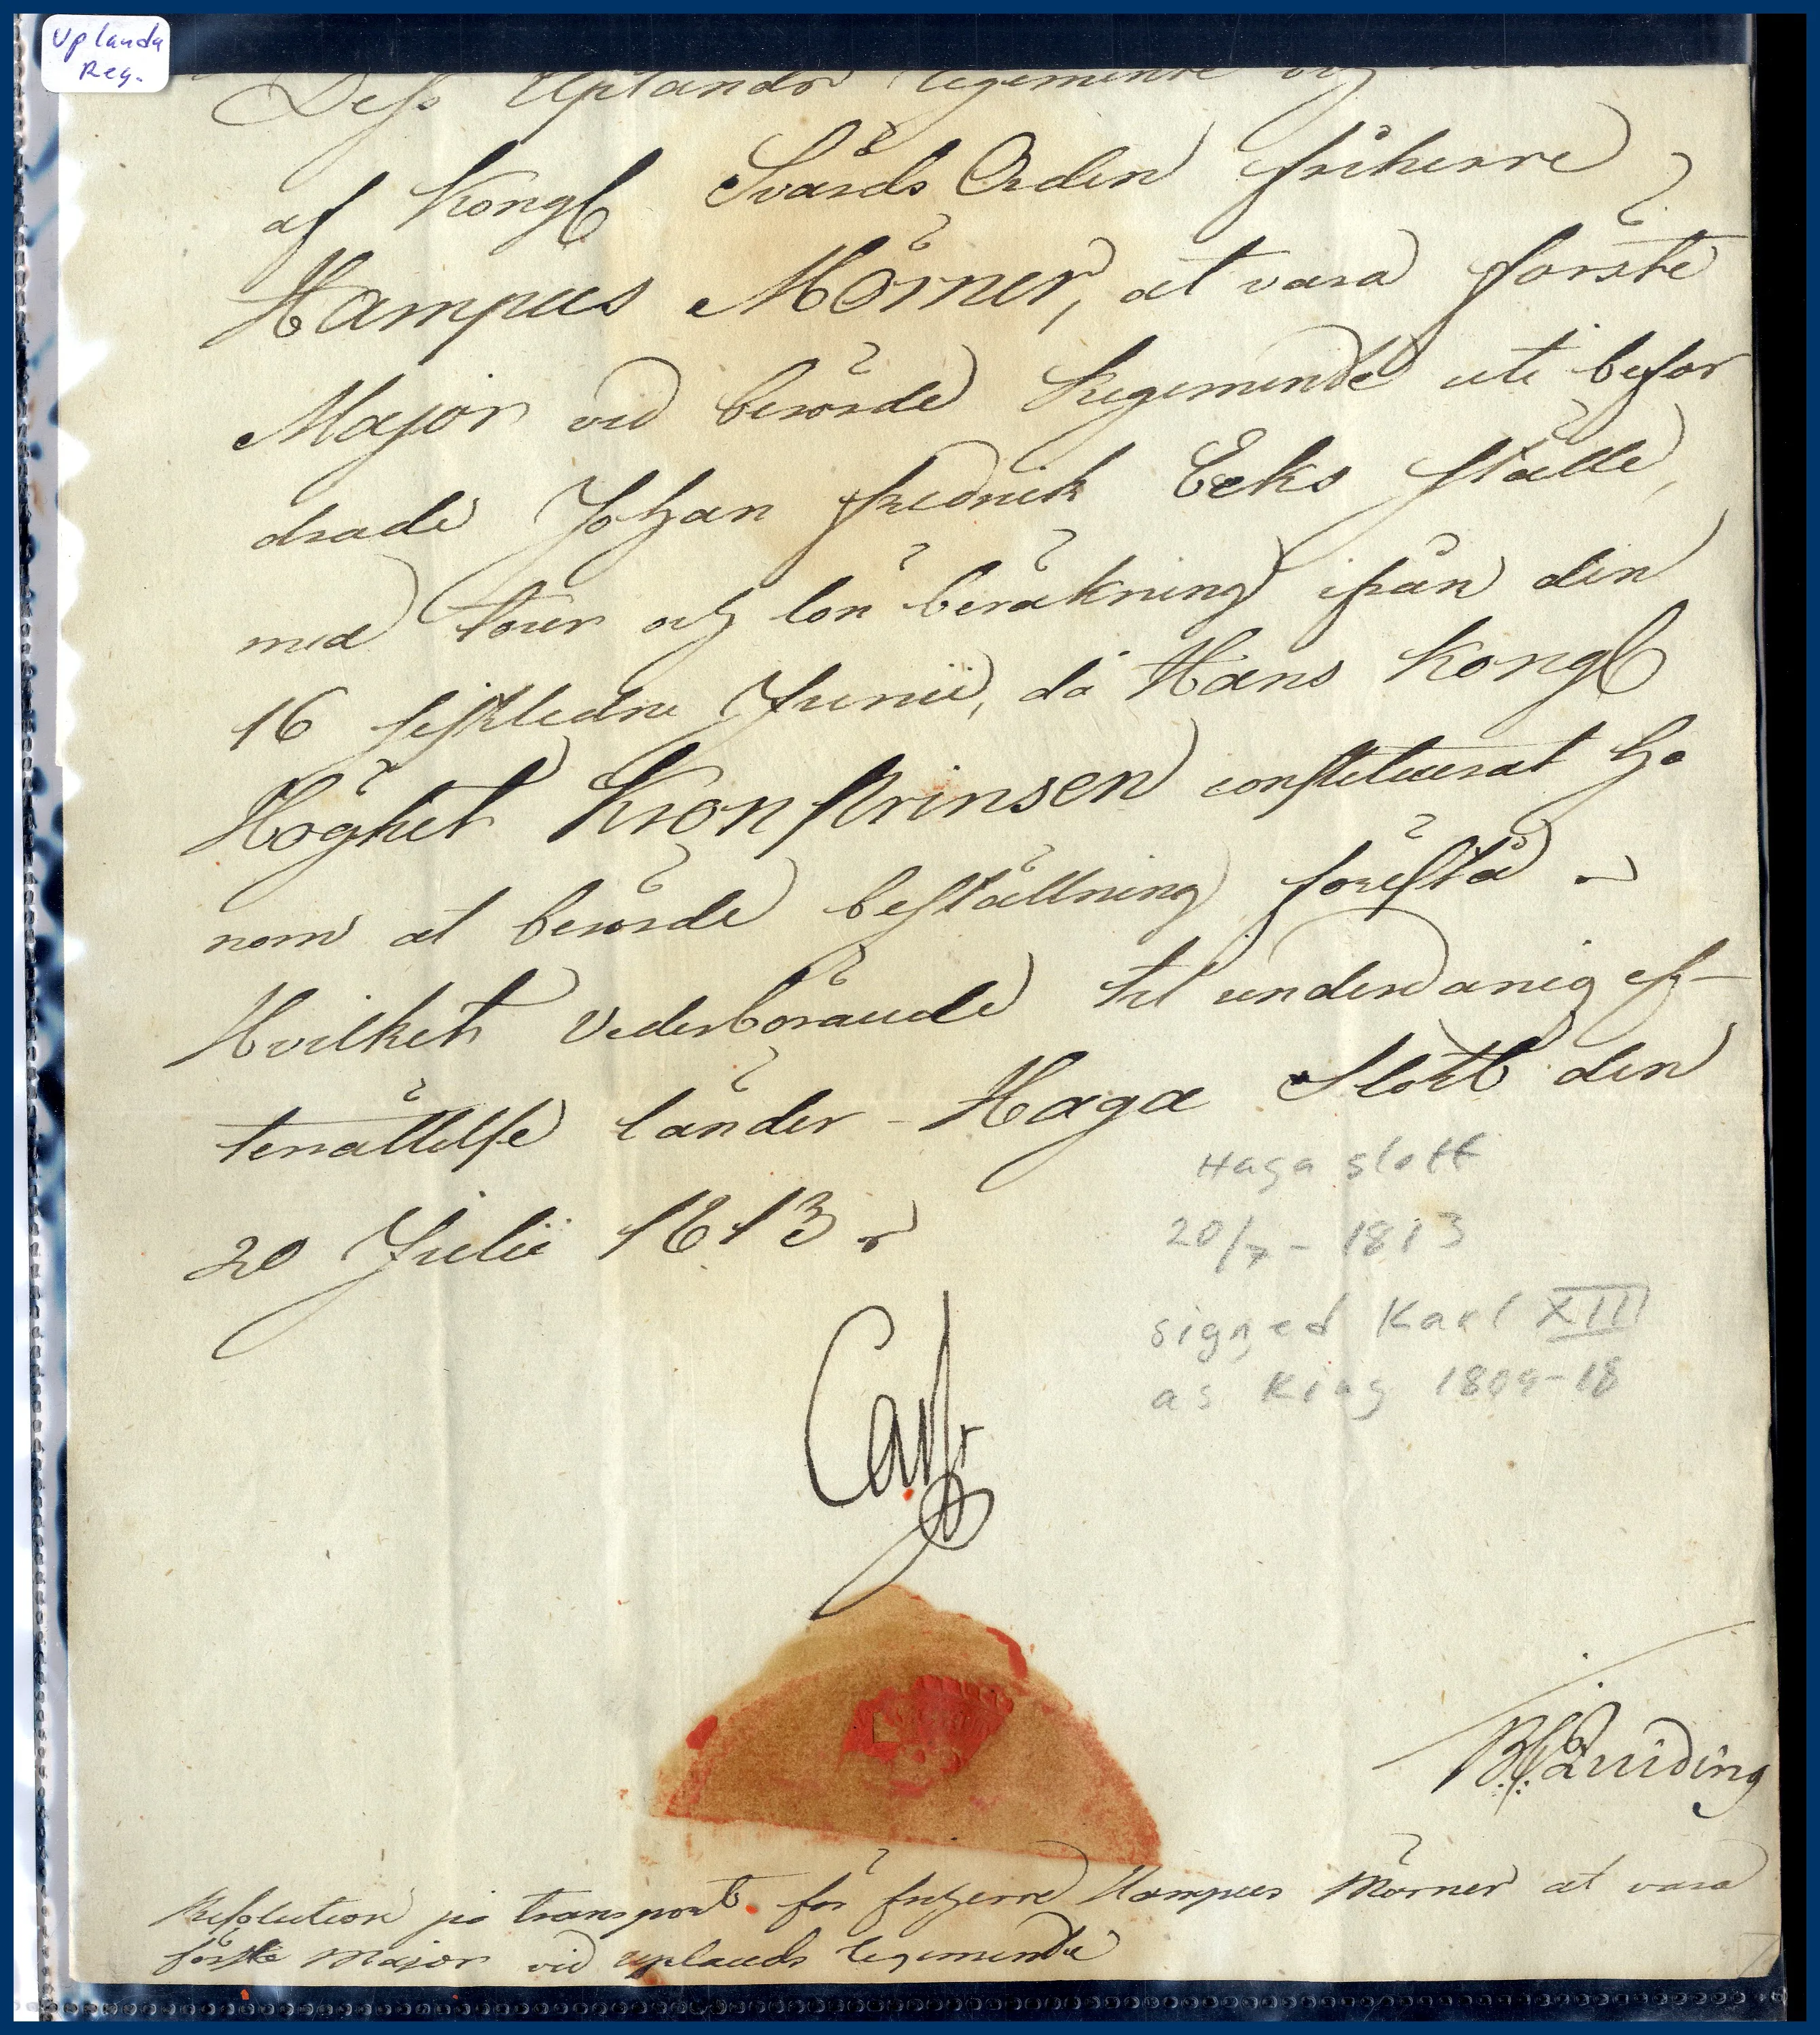 Uplands
Reg.
Dess Uplands regemente och
af Kongl Svärds Orden friherre
Hampus Mörner, at vara förste
Major vid berörde Regemente uti befor
drade Johan Fredrik Eeks ställe,
med tour och lön beräkning ifrån den
16 sistledne Junii, då Hans Kongl
Höghet KronPrinsen constituerat ho
nom at berörde beställning förestå
Hvilket Vederbörande til underdanig ef-
terrättelse länder - Haga Slott den
20 Julii 1813
Haga slott
20/7 - 1813
signed Karl XIII
as King 1809-18
Carl
Resolution på transport för friherre Hampus Mörner at vara
förste Major vid Uplands regemente